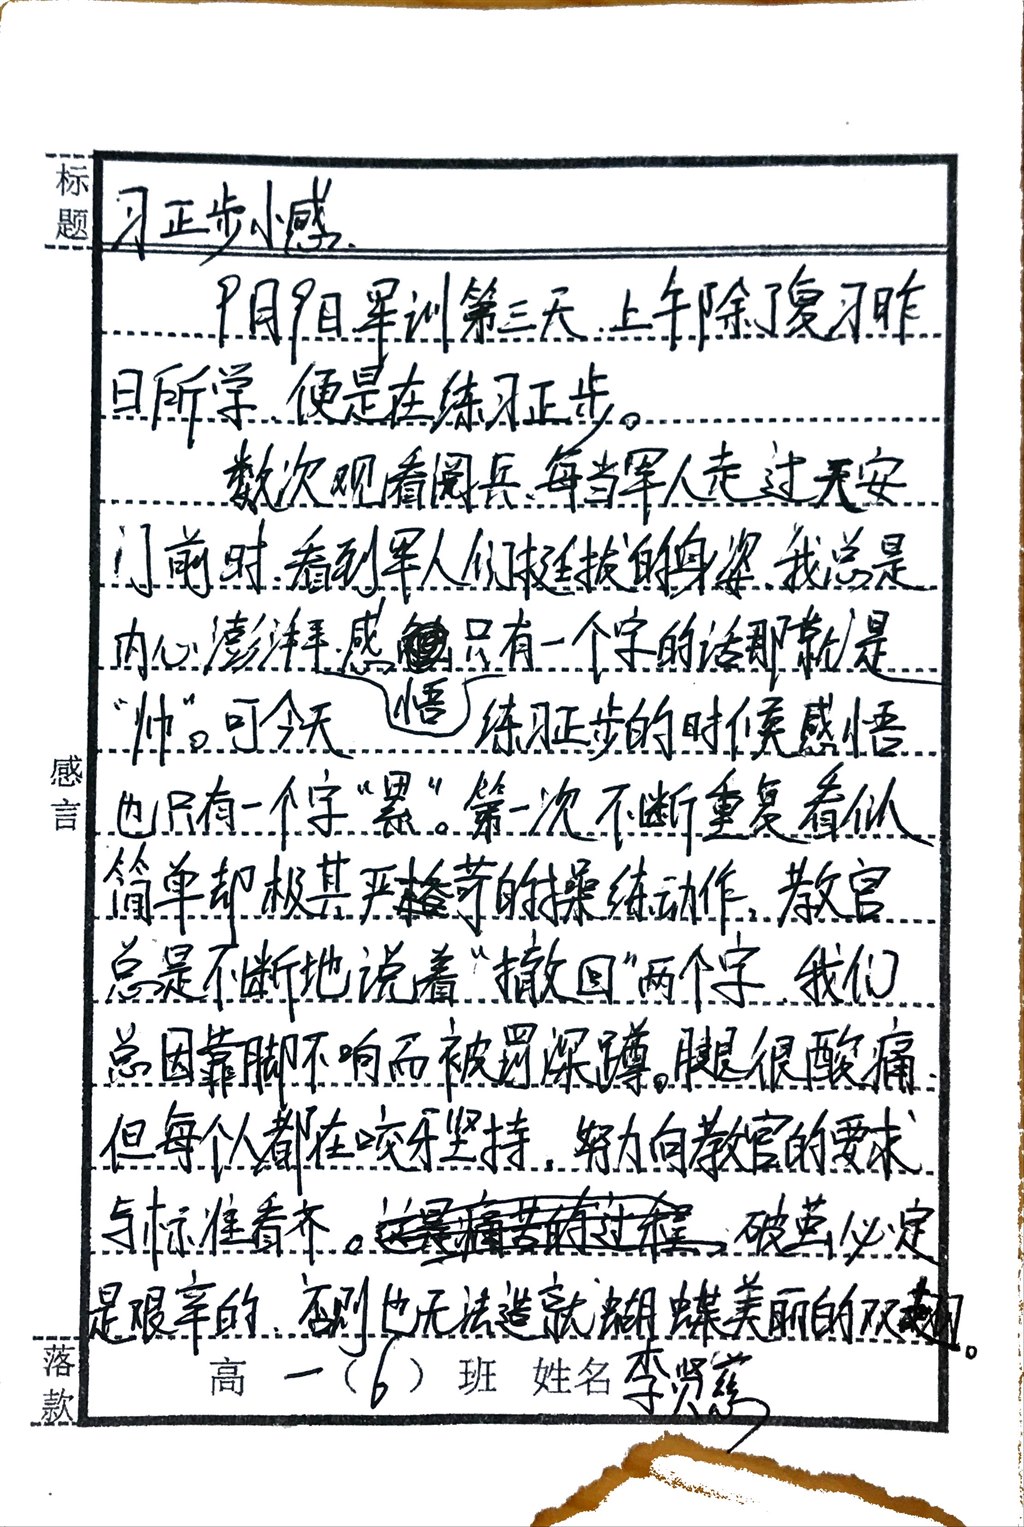 标题
习正步小感.
9月9日军训第三天.上午除了复习昨
日所学.便是在练习正步。
数次观看阅兵.每当军人走过天安
门前时.看到军人们挺拔的身姿.我总是
内心澎湃.感悟只有一个字的话那就是
“帅”。可今天练习正步的时候感悟
也只有一个字“累”。第一次不断重复看似
简单却极其严格苛的操练动作.教官
总是不断地说着“撤回”两个字 我们
总因靠脚不响而被罚深蹲。腿很酸痛.
但每个人都在咬牙坚持.努力向教官的要求
与标准看齐。破茧必定
是艰辛的.否则也无法造就蝴蝶美丽的双翅。
感言
落款
高一(6)班 姓名李贤